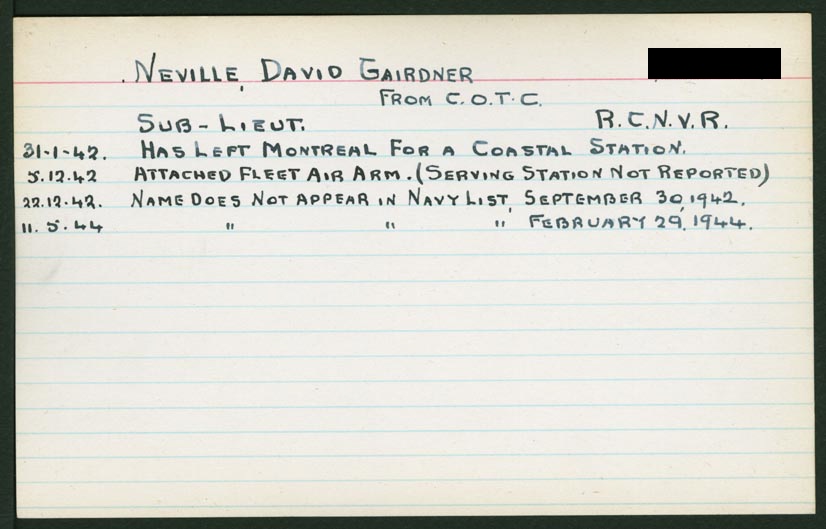 NEVILLE, DAVID GAIRDNER
FROM C.O.T.C.
SUB-LIEUT. R.C.N.V.R.
31-1-42. HAS LEFT MONTREAL FOR A COASTAL STATION.
5.12.42 ATTACHED FLEET AIR ARM. (SERVING STATION NOT REPORTED)
22.12.42. NAME DOES NOT APPEAR IN NAVY LIST, SEPTEMBER 30, 1942.
11.5.44 " " " FEBRUARY 29, 1944.